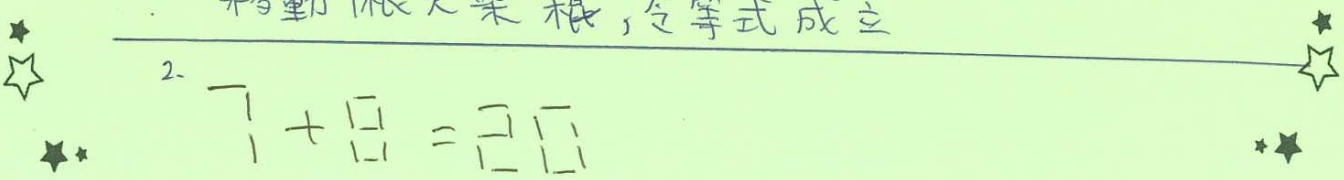 移動1根火柴棍,令等式成立
2. 7+8=20